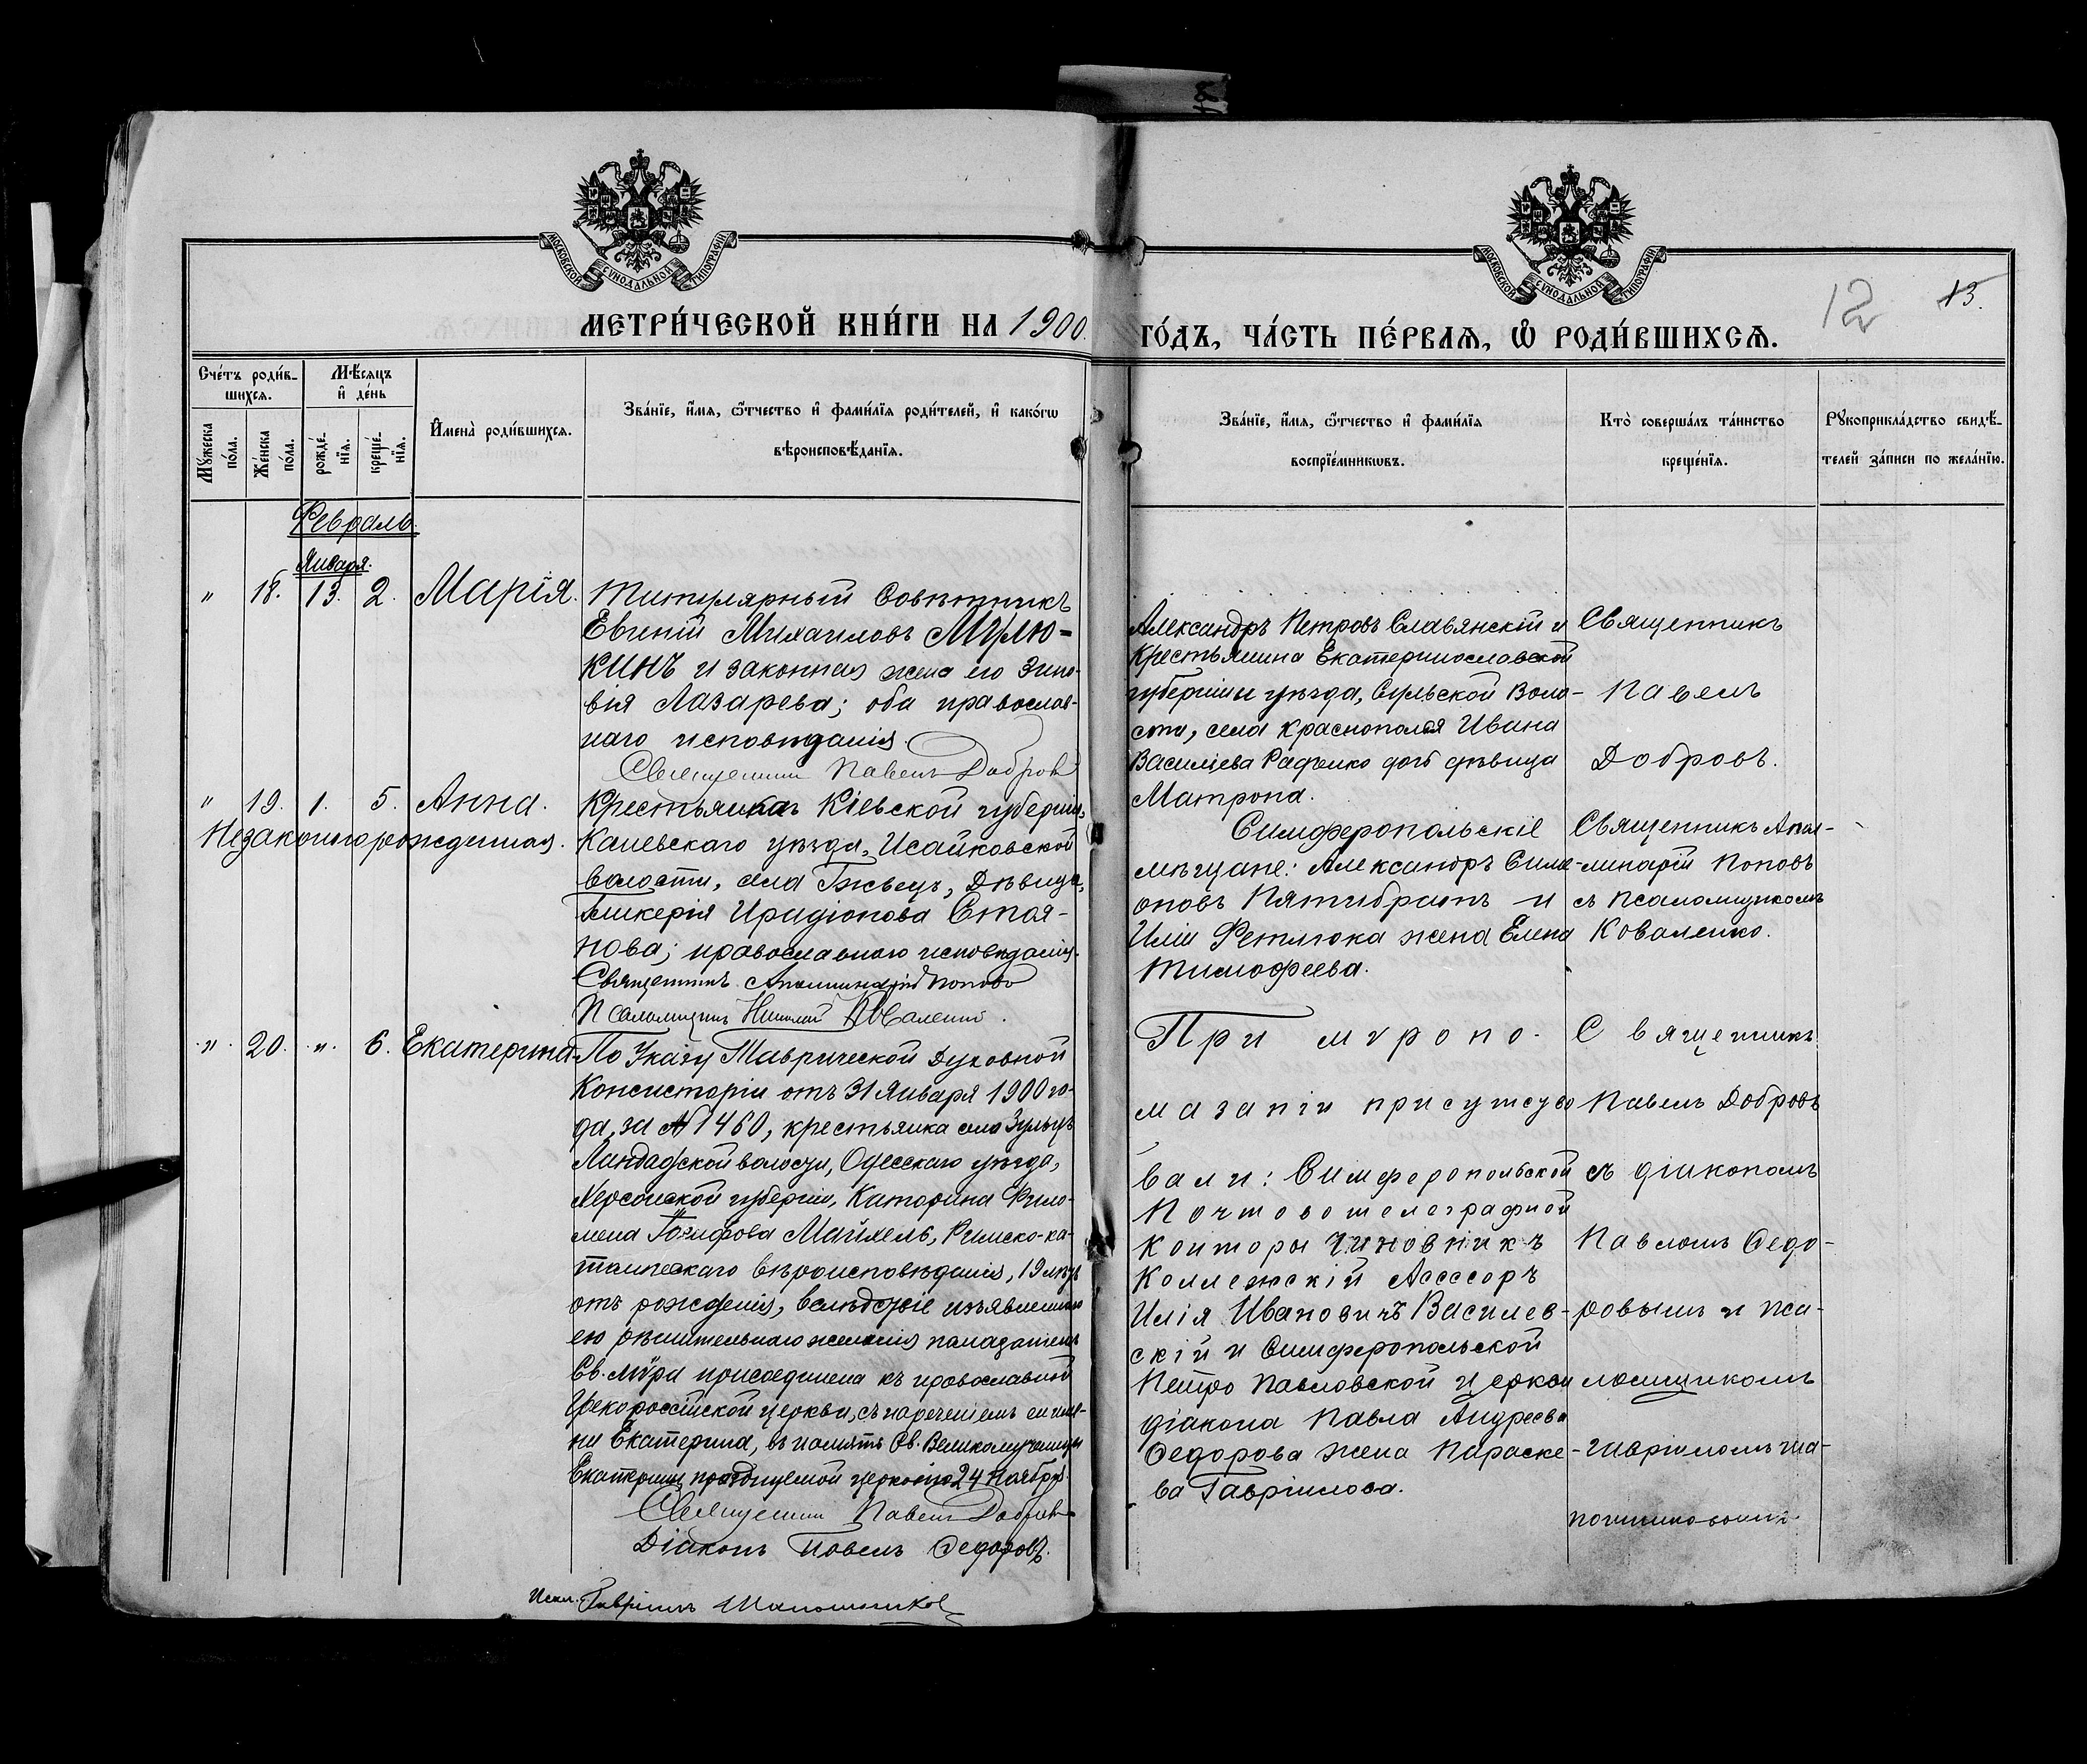 МОСКОВСКОЙ СѴНОДАЛЬНОЙ ТИПОГРАФІИ
МОСКОВСКОЙ СѴНОДАЛЬНОЙ ТИПОГРАФІИ
12 13.
МЕТРИ́ЧЕСКОЙ КНИ́ГИ НА 1900. ГО́ДЪ, ЧА́СТЬ ПЕ́РВАѦ, Ѡ҆ РОДИ́ВШИХСѦ.
Сче́тъ роди́в-
шихсѧ.
Мѣ́сяцъ
и҆ де́нь
Мꙋ́жеска
по́ла.
Же́нска
по́ла.
рожде́-
нїѧ.
креще́-
нїѧ.
И҆мена̀ роди́вшихсѧ.
Зва́нїе, и҆́мѧ, ѻ҆́тчество и҆ фами́лїѧ роди́телей, и҆ како́гѡ
вѣроисповѣ́данїѧ.
Зва́нїе, и҆́мѧ, ѻ҆́тчество и҆ фами́лїѧ
воспрїе́мникѡвъ.
Кто̀ соверша́лъ та́инство
креще́нїѧ.
Рꙋкоприкла́дство свидѣ́-
телей за́писи по жела́нїю.
Февраль.
Января.
" 18. 13. 2. Марія.
Титулярный Совѣтникъ
Евгеній Михаиловъ Мурлю=
кинъ и законная жена его Зино-
вія Лазарева; оба православ-
наго исповѣданія.
Священникъ Павелъ Добровъ
Александръ Петровъ Славянскій и
Крестьянина Екатеринославской
губерніи и уѣзда, Сурьской Воло-
сти, села Краснополья Ивана
Василіева Радченко дочь дѣвица
Матрона.
Священникъ
Павелъ
Добровъ.
" 19. 1. 5. Анна.
Незаконнорожденная.
Крестьянка Кіевской губерніи,
Каневскаго уѣзда, Исайковской
волости, села дѣвица,
Гликерія Иродіонова Стоя-
нова; православнаго исповѣданія.
Священникъ Аполлинарій Поповъ
Псаломщикъ Николай Коваленко.
Симферопольскіе
мѣщане: Александръ Симе-
оновъ Пятибратъ и
Иліи Фетлюка жена Елена
Тимофеева.
Священникъ Апол-
линарій Поповъ
съ псаломщикомъ
Коваленко.
" 20. " 6. Екатерина.
По Указу Таврической Духовной
Консисторіи отъ 31 Января 1900 го-
да, за № 1460, крестьянка села Зульцъ
Ландауской волости, Одесскаго уѣзда,
Херсонской губерніи, Катарина Фило-
мена Іозифова Майхель, Римско-ка-
толическаго вѣроисповѣданія, 19 лѣтъ
отъ рожденія, вслѣдствіе изъявленнаго
ею рѣшительнаго желанія помазаніемъ
Св. Мѵра присоединена къ православной
Грекороссійской церкви, съ нареченіемъ ей име-
ни Екатерина, въ память Св. Великомученицы
Екатерины, празднуемой церковію 24 Ноября.
Священникъ Павелъ Добровъ
Діаконъ Павелъ Федоровъ.
Псал. Гавріилъ Шапошниковъ
При мѵропо-
мазаніи присутство
вали: Симферопольской
Почтовотелеграфной
Конторы чиновникъ
Коллежскій Асессоръ
Илія Ивановичъ Василев-
скій и Симферопольской
Петро Павловской церкви
діакона Павла Андреева
Федорова жена Параске-
ва Гавріилова.
Священникъ
Павелъ Добровъ
съ діакономъ
Павломъ Федо-
ровымъ и пса-
ломщикомъ
Гавріиломъ Ша-
пошниковымъ.